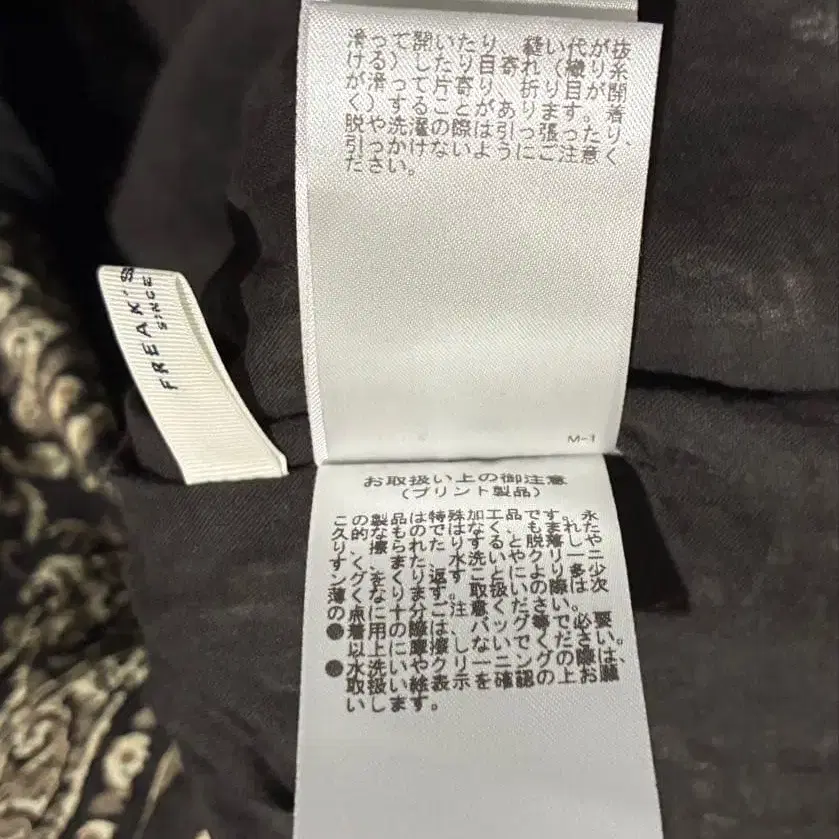 滑って開いたり、縫い代が抜
ける)したり目寄れ(織り糸
が滑って片寄り、折り目が開
く)することがあります。着
脱や洗濯の際は引っ張ったり、
引っかけないようにご注意く
ださい。
M-1
FREAK'S
SINCE
お取扱い上の御注意
(プリント製品)
この製品は特殊加工品です。永
久的なものではなく、もまれた
り、擦られたりすると脱落しや
すく、また、水洗いやクリーニ
ングをくり返すことにより多少
薄くなります。取扱いの際は次
の点に十分ご注意ください。
●着用の際は、バッグ等で必要
以上に摩擦しないでください。
●水洗いやクリーニングの際は、
取扱い絵表示を確認の上お願
いします。